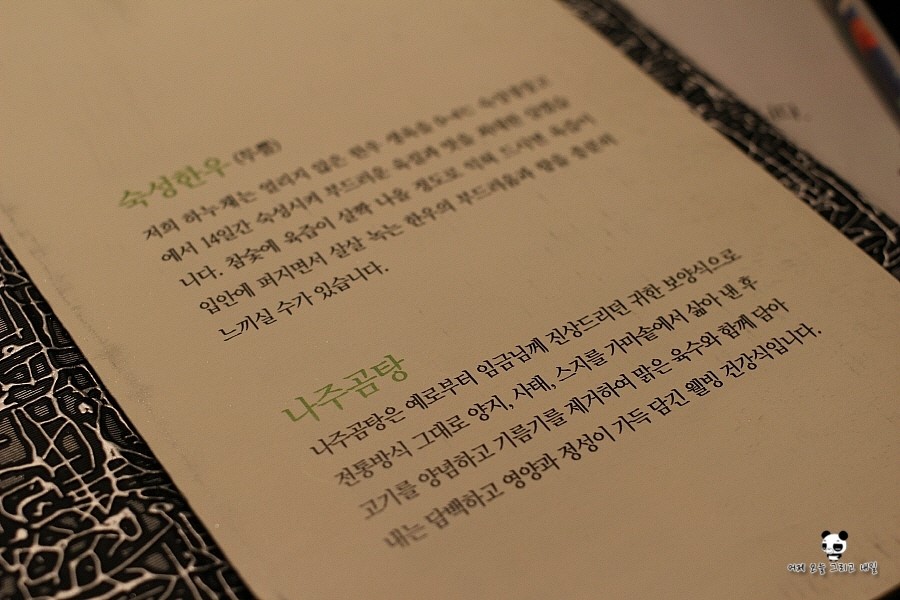 숙성한우 (등심)
저희 하누채는 얼리지 않은 한우 생육을 0~4℃ 숙성냉장고
에서 14일간 숙성시켜 부드러운 육질과 맛을 최대한 살렸습
니다. 참숯에 육즙이 살짝 나올 정도로 익혀 드시면 육즙이
입안에 퍼지면서 살살 녹는 한우의 부드러움과 맛을 충분히
느끼실 수가 있습니다.
나주곰탕
나주곰탕은 예로부터 임금님께 진상드리던 귀한 보양식으로
전통방식 그대로 양지, 사태, 스지를 가마솥에서 삶아 낸 후
고기를 양념하고 기름기를 제거하여 맑은 육수와 함께 담아
내는 담백하고 영양과 정성이 가득 담긴 웰빙 건강식입니다.
어제 오늘 그리고 내일